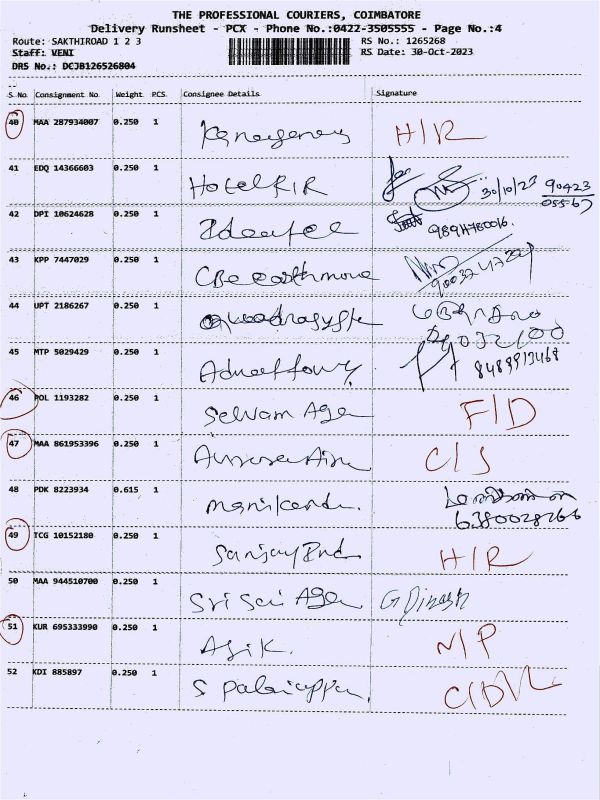 THE PROFESSIONAL COURIERS, COIMBATORE
Delivery Runsheet - PCX - Phone No.:0422-3505555 - Page No.:4
Route: SAKTHIROAD 1 2 3 RS No.: 1265268
Staff: VENI RS Date: 30-Oct-2023
DRS No.: DCJB126526804
S.No Consignment No. Weight PCS. Consignee Details Signature
40 MAA 287934007 0.250 1 H/R
41 EDQ 14366603 0.250 1 Hotel RIR 30/10/23 90423
05567
42 DPI 10624628 0.250 1
43 KPP 7447029 0.250 1 CBe earthmove
44 UPT 2186267 0.250 1
45 MTP 5029429 0.250 1 8489913468
46 POL 1193282 0.250 1 Selvam Agen F/D
47 MAA 861953396 0.250 1 C/S
48 PDK 8223934 0.615 1 manikandn.
6380028266
49 TCG 10152180 0.250 1 Sanjay Ind H/R
50 MAA 944510700 0.250 1 Sri Sai Agen G Dinesh
51 KUR 695333990 0.250 1 Asik. N/P
52 KDI 885897 0.250 1 S palaniappan.